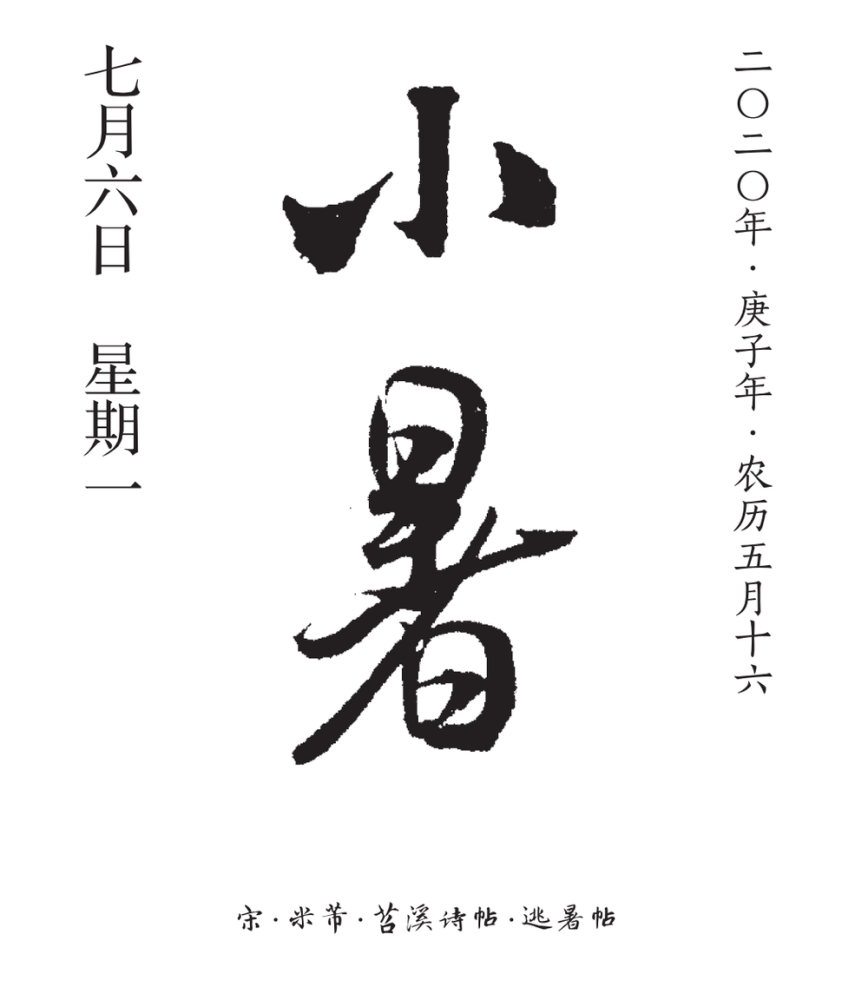 二〇二〇年·庚子年·农历五月十六
小暑
七月六日 星期一
宋·米芾·苕溪诗帖·逃暑帖